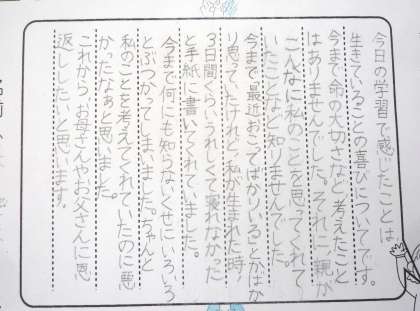 今日の学習で感じたことは
生きていることの喜びについてです。
今まで命の大切さなど考えたこと
はありませんでした。それに、親が
こんなに私のことを思ってくれて
いたことなど知りませんでした。
今まで、最近おこってばかりいることばか
り思っていたけれど、私が生まれた時、
3日間くらいうれしくて寝れなかった
と手紙に書いてくれていました。
今まで何にも知らないくせにいろいろ
とぶつかってしまいました。ちゃんと
私のことを考えてくれていたのに悪
かったなぁと思いました。
これから、お母さんやお父さんに恩
返ししたいと思います。